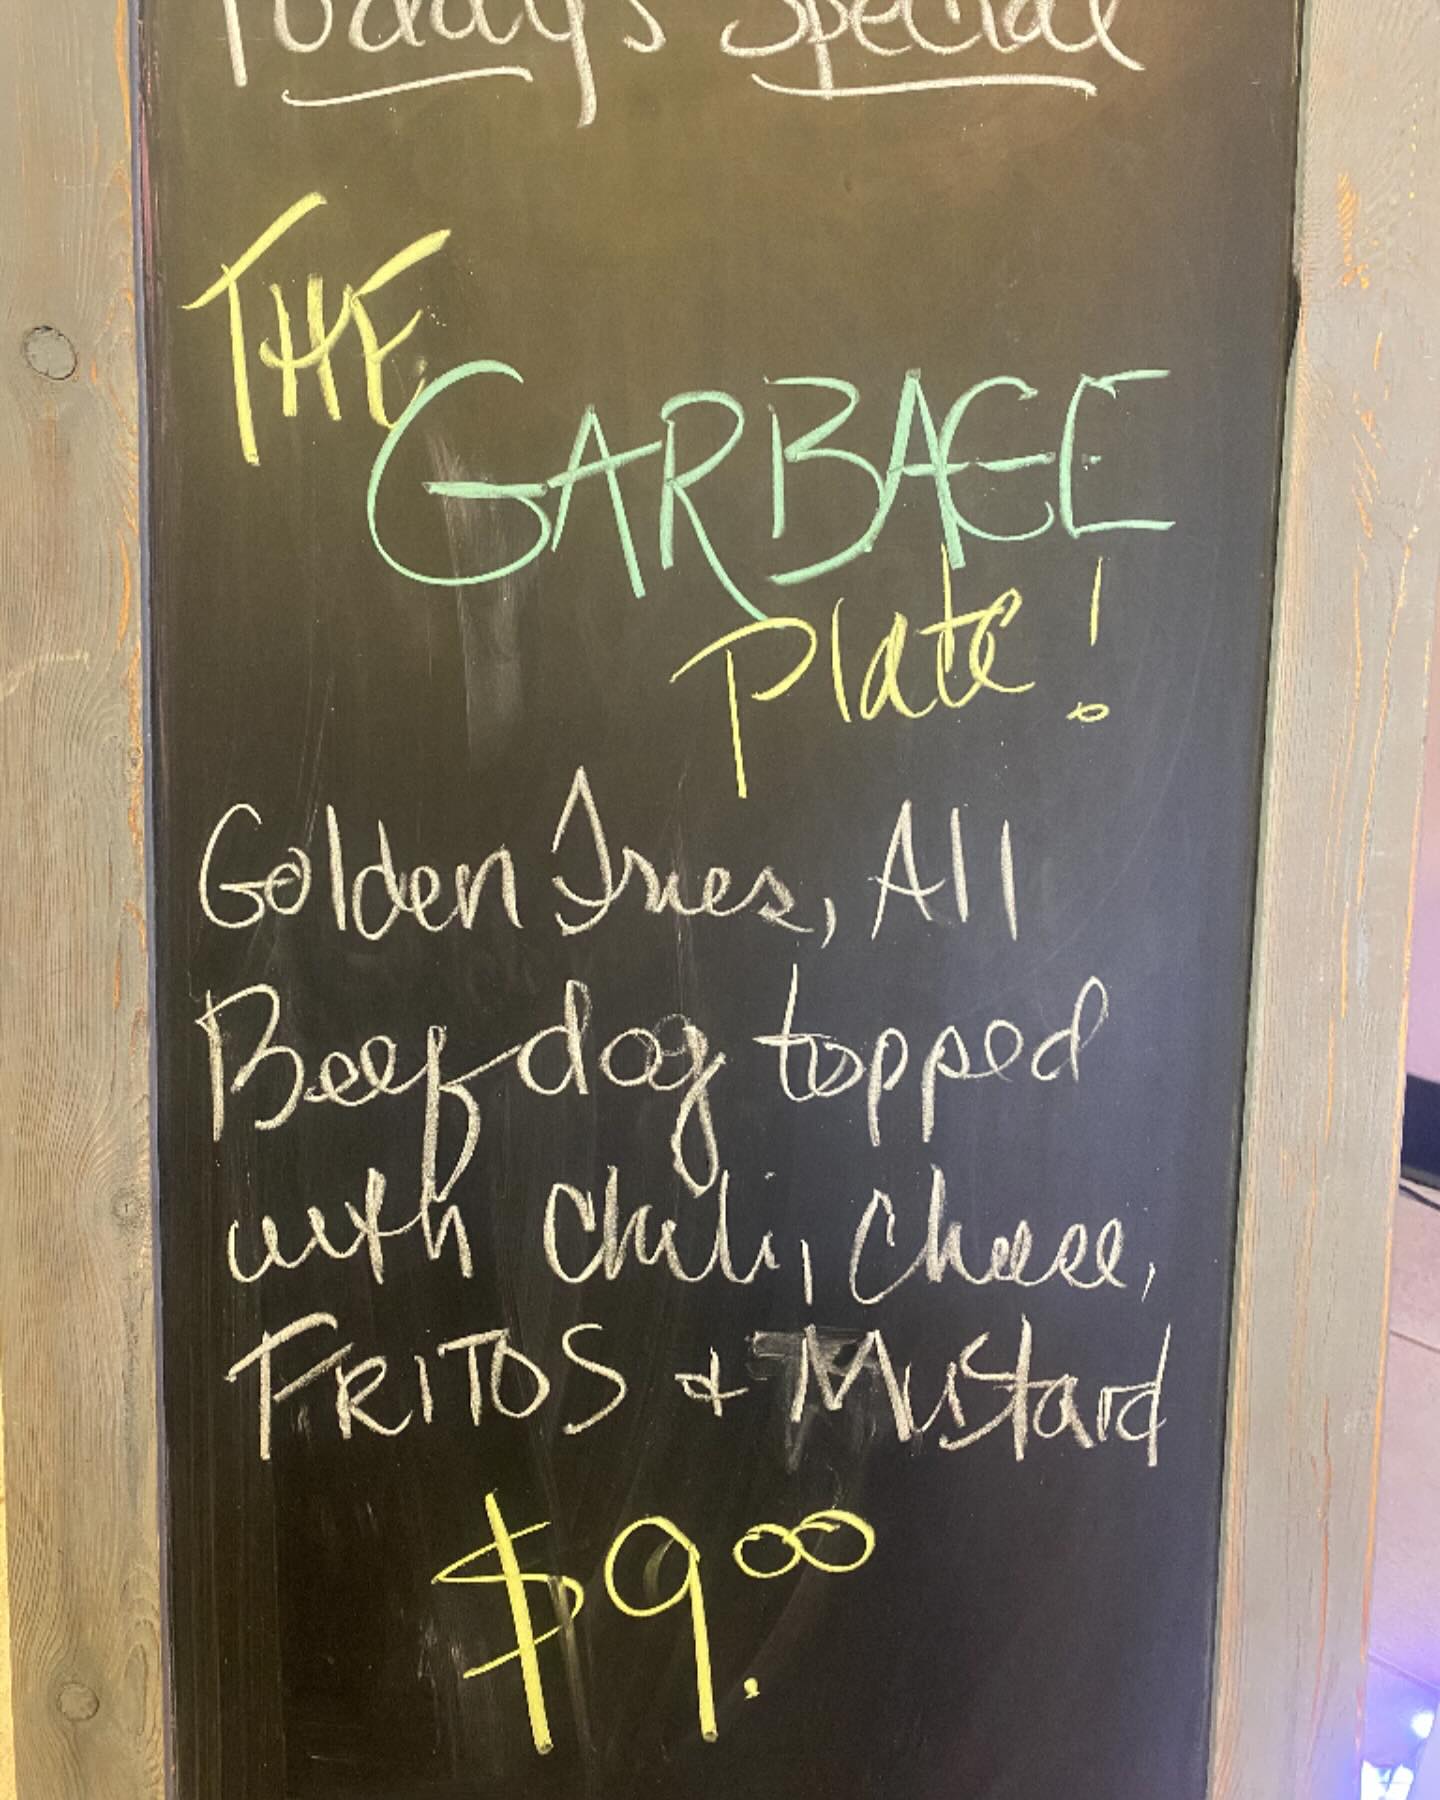 Today's Special
THE
GARBAGE
Plate!
Golden Fries, All
Beef dog topped
with Chili, Cheese,
FRITOS & Mustard
$9.00